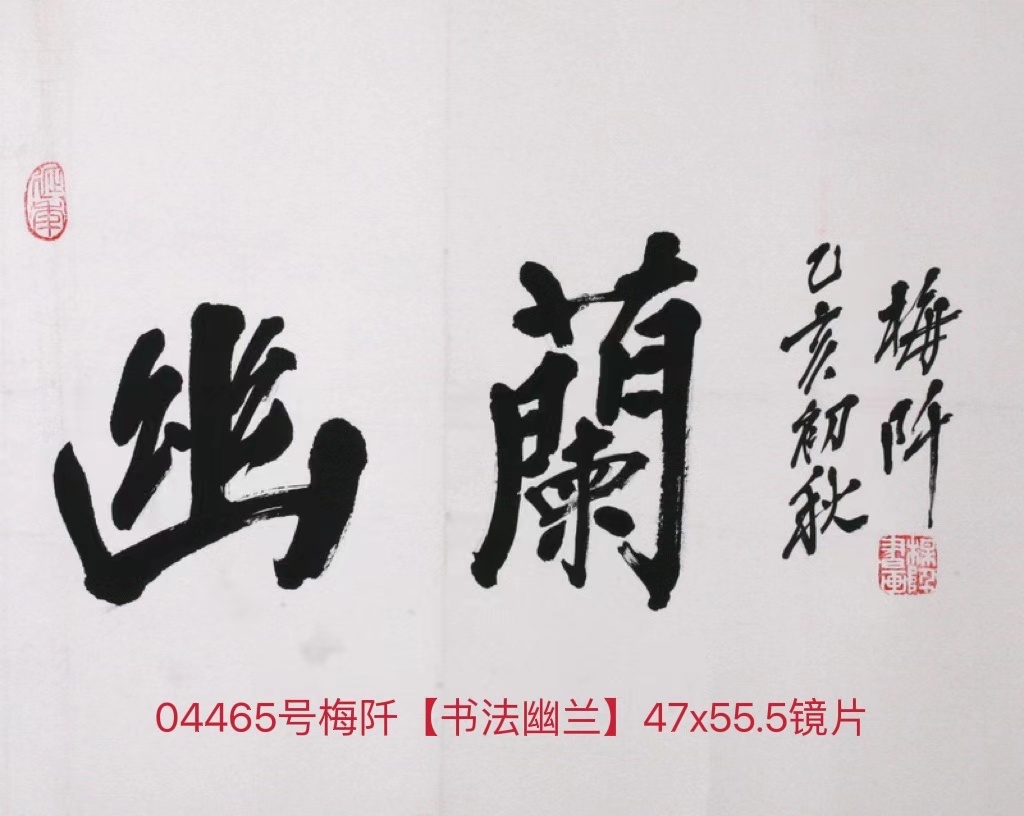 幽蘭
乙亥初秋
梅阡
04465号梅阡【书法幽兰】47x55.5镜片